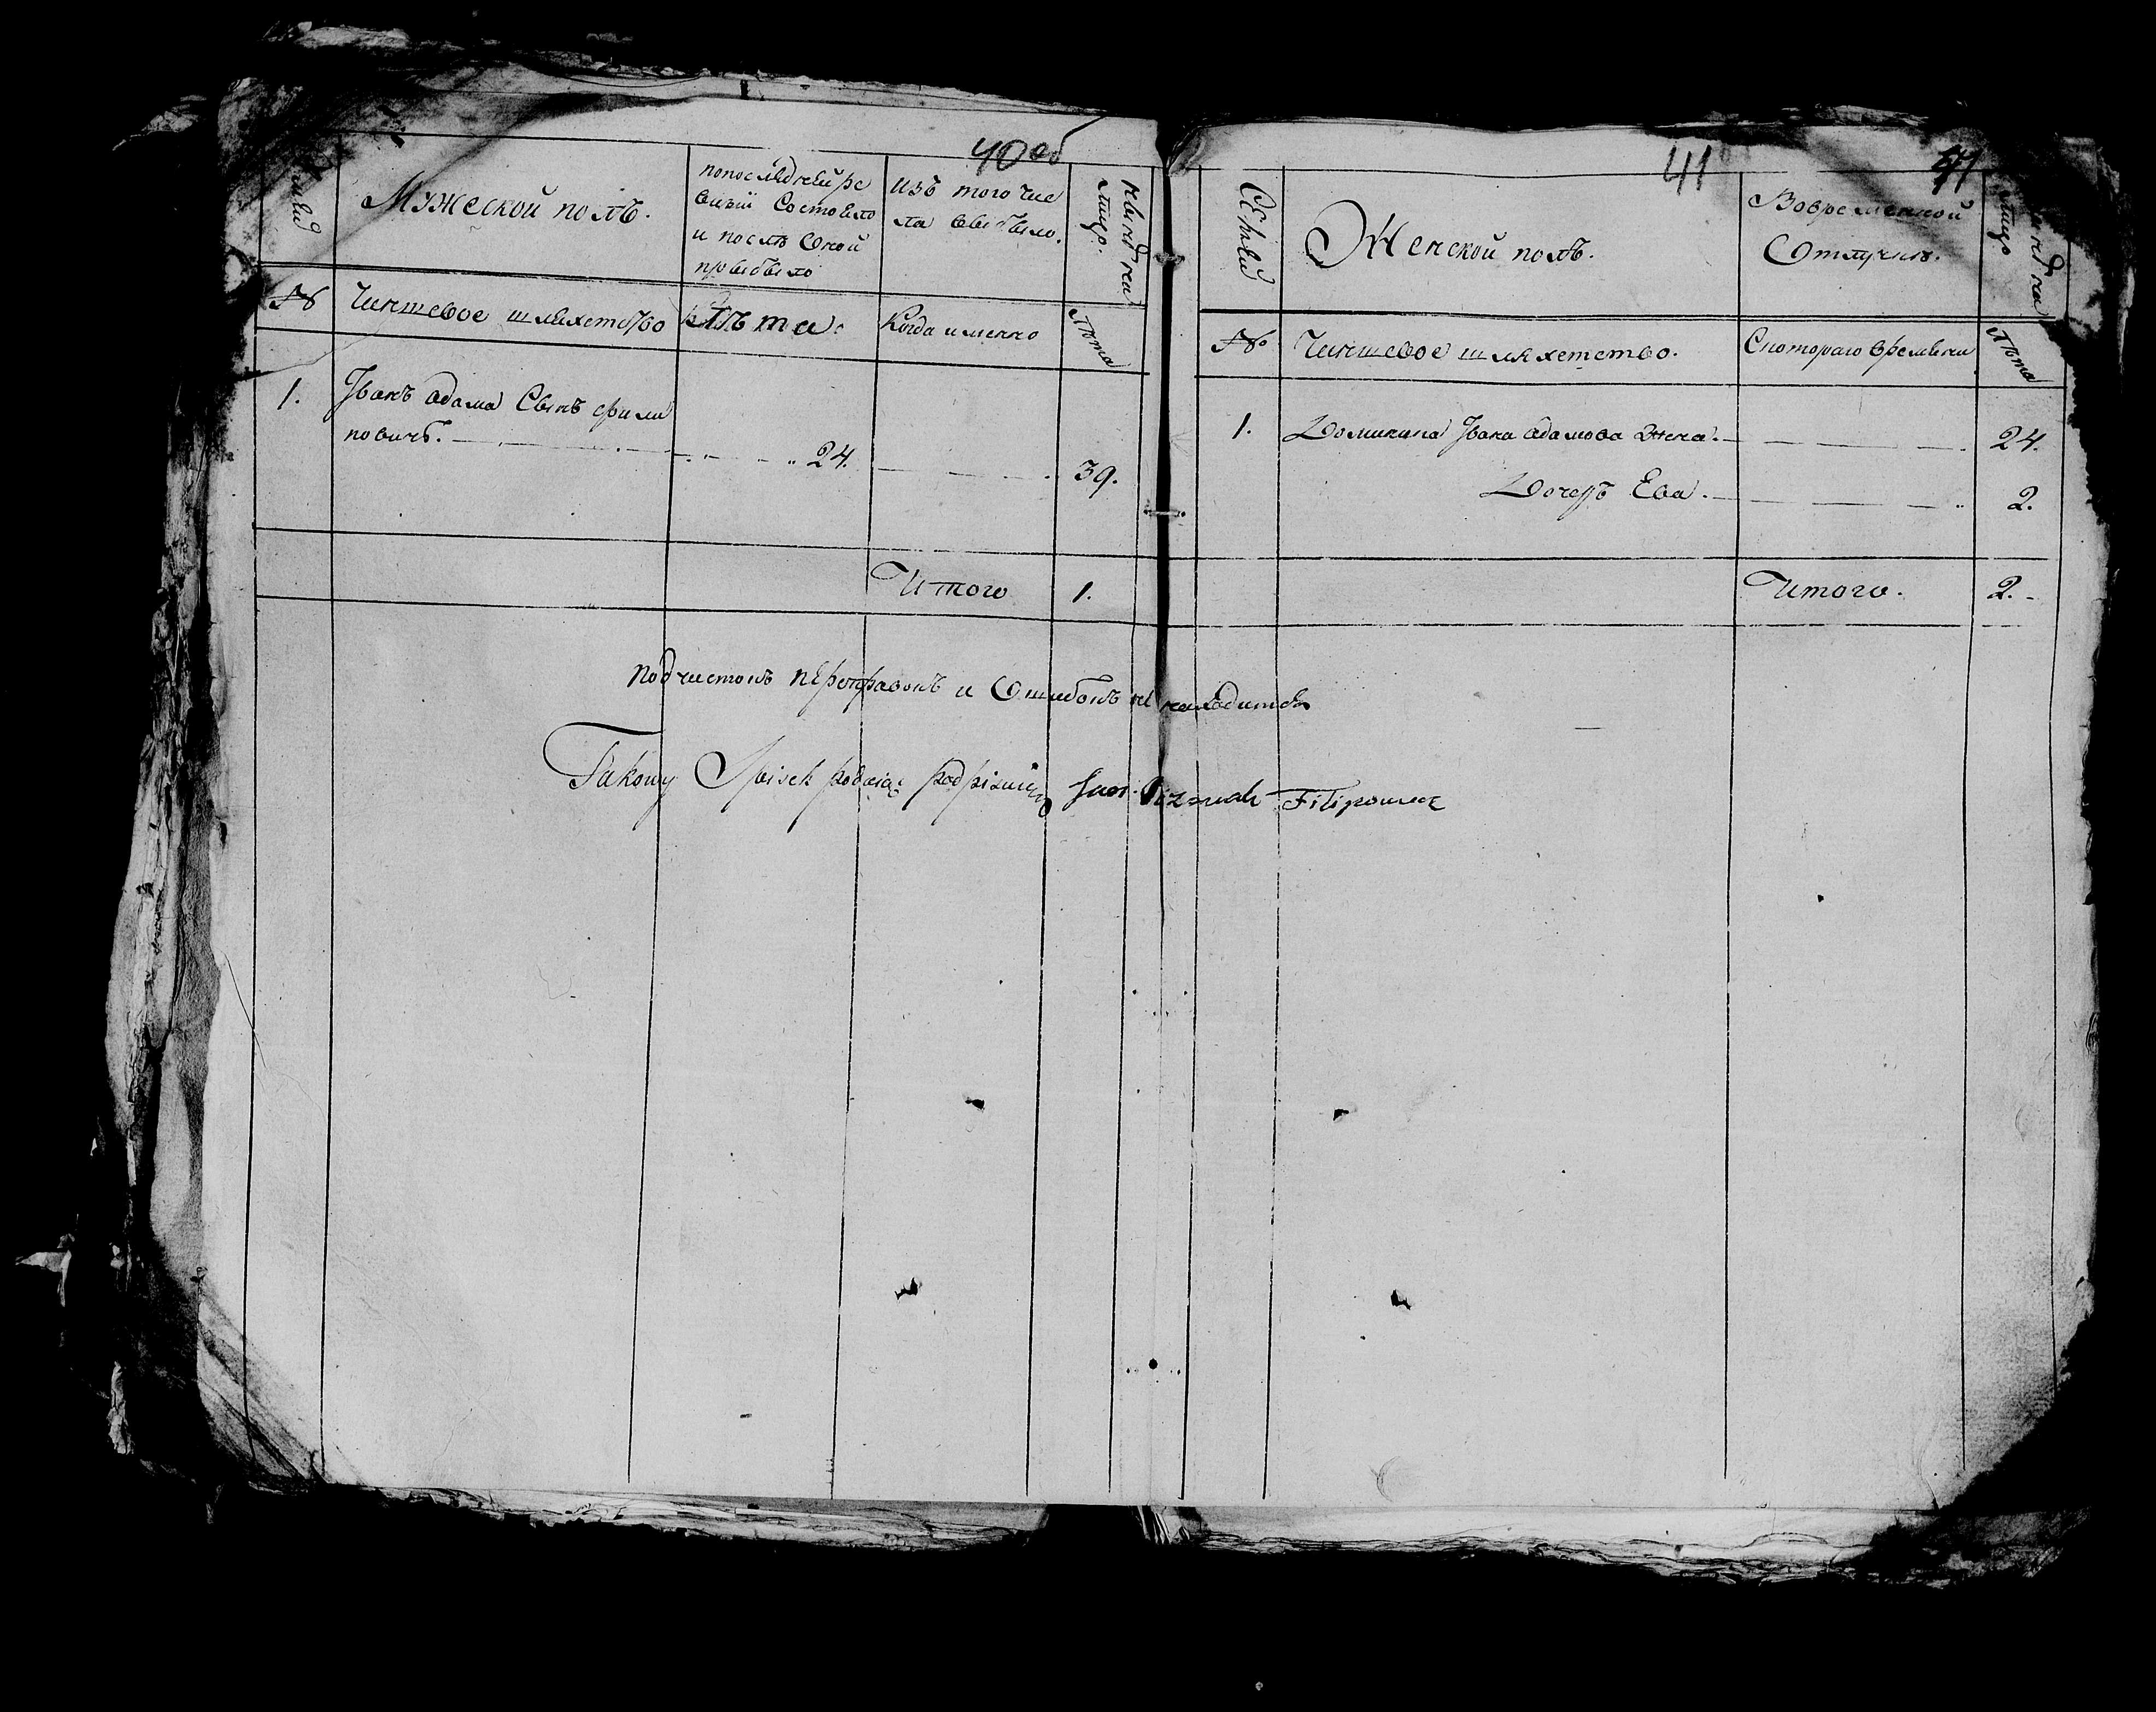 40 об
Мужеской полъ.
попоследней ре
визiи Состояло
и послѣ Оной
прибыло
Изъ того чис
ла выбыло.
ныне на
лицо.
№
Чиншевое шляхетство
Лѣта.
Когда именно
Лѣта
1.
Иванъ адама Сынъ фили
повичъ.
24.
39.
Итого
1.
41
41
Семьи
Женской полъ.
Вовременной
Отлучке.
лицо
№
Чиншевое шляхетство.
Скотораго времени
Лѣта
1.
Домицела Ивана адамова Жена.
24.
Дочеръ Ева.
2.
Итого.
2.
Подчистокъ переправокъ и Ошибокъ не находится
Takowy Spisek podaiąc podpisuię Filipowicz